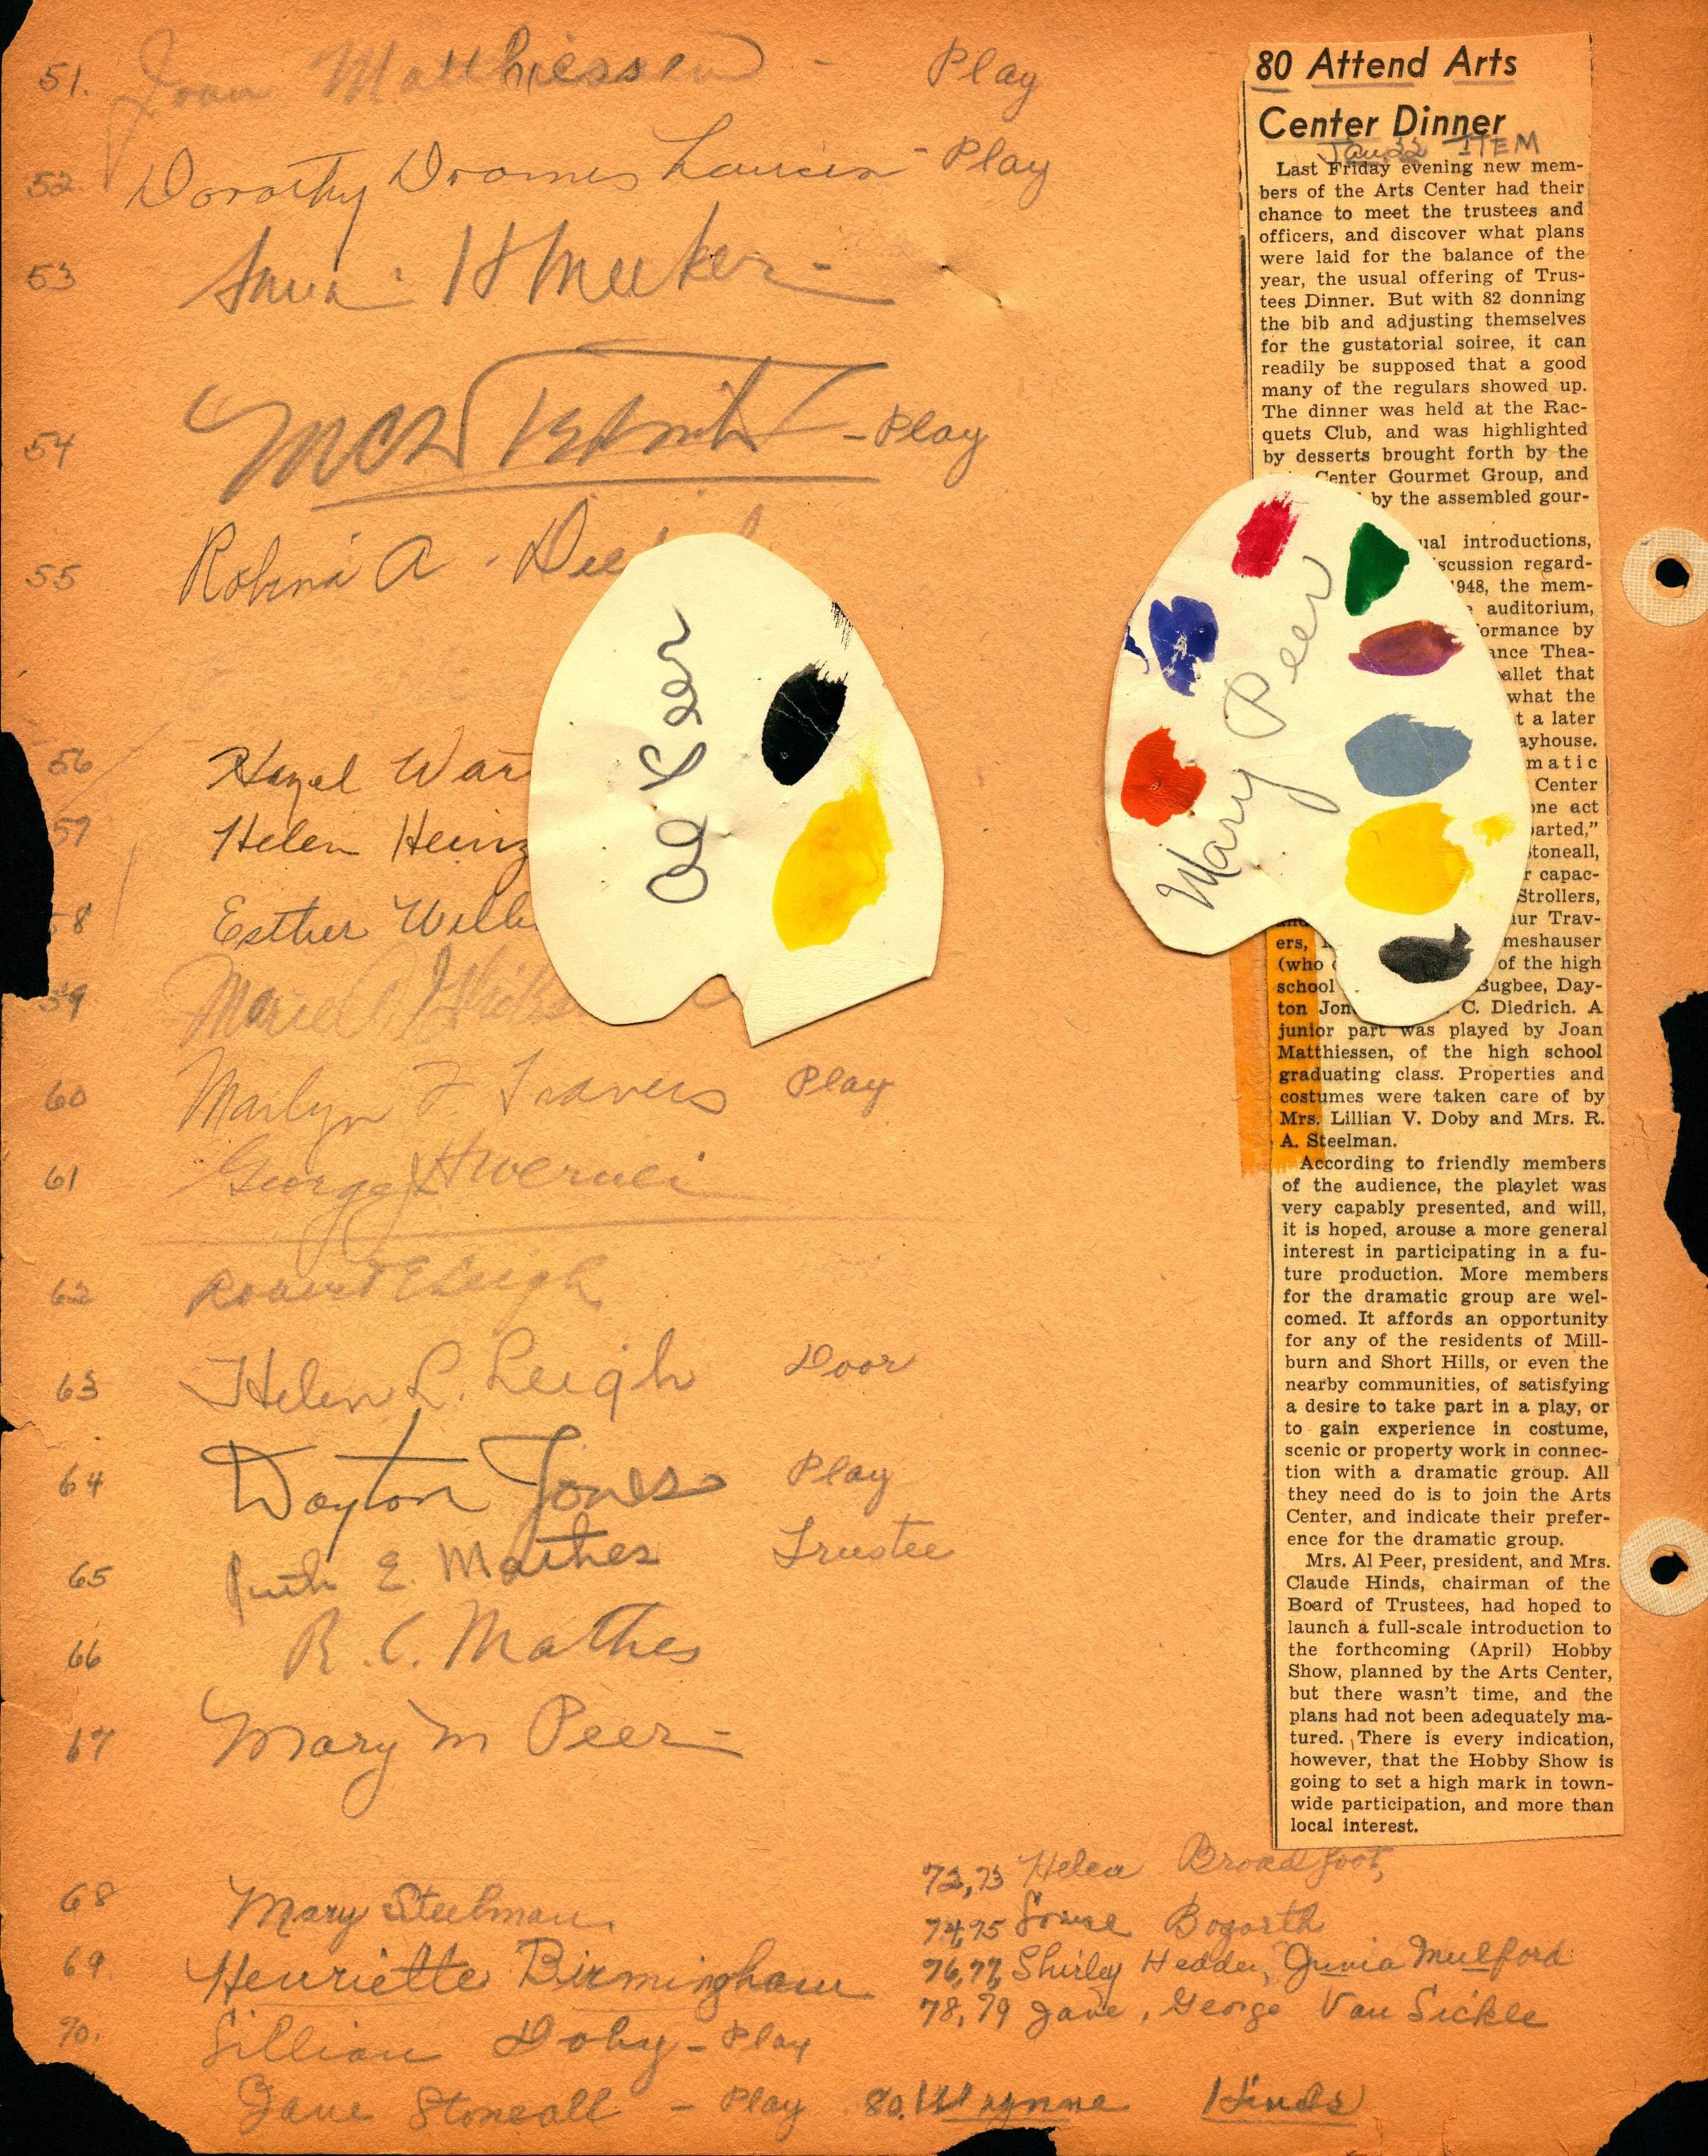 51. Joan Matthiessen - Play
52. Dorothy - Play
53 H Meeker -
54 - Play
55 A.
56 Hazel
57 Helen
58 Esther
59
60 Marlyn F. Travers Play
61 George
62 Robert E Leigh
63 Helen L. Leigh Door
64 Dayton Jones Play
65 Ruth E. Mathes Trustee
66 R. C. Mathes
67 Mary M Peer -
68 Mary Steelman
69 Henriette Birmingham
70. Lillian Doby - Play
Jane Stoneall - Play
72,73 Helen Broadfoot,
74,75 Louise Bogarth
76,77, Shirley Hedden, Junia Mulford
78,79 Jane, George Van Sickle
80. Wynne Hinds
Al Peer
Mary Peer
80 Attend Arts
Center Dinner
Jan 22 ITEM
Last Friday evening new mem-
bers of the Arts Center had their
chance to meet the trustees and
officers, and discover what plans
were laid for the balance of the
year, the usual offering of Trus-
tees Dinner. But with 82 donning
the bib and adjusting themselves
for the gustatorial soiree, it can
readily be supposed that a good
many of the regulars showed up.
The dinner was held at the Rac-
quets Club, and was highlighted
by desserts brought forth by the
Center Gourmet Group, and
by the assembled gour-
introductions,
regard-
1948, the mem-
auditorium,
by
Thea-
that
what the
t a later
Center
one act
Strollers,
Trav-
ers,
(who of the high
school Bugbee, Day-
ton C. Diedrich. A
junior part was played by Joan
Matthiessen, of the high school
graduating class. Properties and
costumes were taken care of by
Mrs. Lillian V. Doby and Mrs. R.
A. Steelman.
According to friendly members
of the audience, the playlet was
very capably presented, and will,
it is hoped, arouse a more general
interest in participating in a fu-
ture production. More members
for the dramatic group are wel-
comed. It affords an opportunity
for any of the residents of Mill-
burn and Short Hills, or even the
nearby communities, of satisfying
a desire to take part in a play, or
to gain experience in costume,
scenic or property work in connec-
tion with a dramatic group. All
they need do is to join the Arts
Center, and indicate their prefer-
ence for the dramatic group.
Mrs. Al Peer, president, and Mrs.
Claude Hinds, chairman of the
Board of Trustees, had hoped to
launch a full-scale introduction to
the forthcoming (April) Hobby
Show, planned by the Arts Center,
but there wasn't time, and the
plans had not been adequately ma-
tured. There is every indication,
however, that the Hobby Show is
going to set a high mark in town-
wide participation, and more than
local interest.